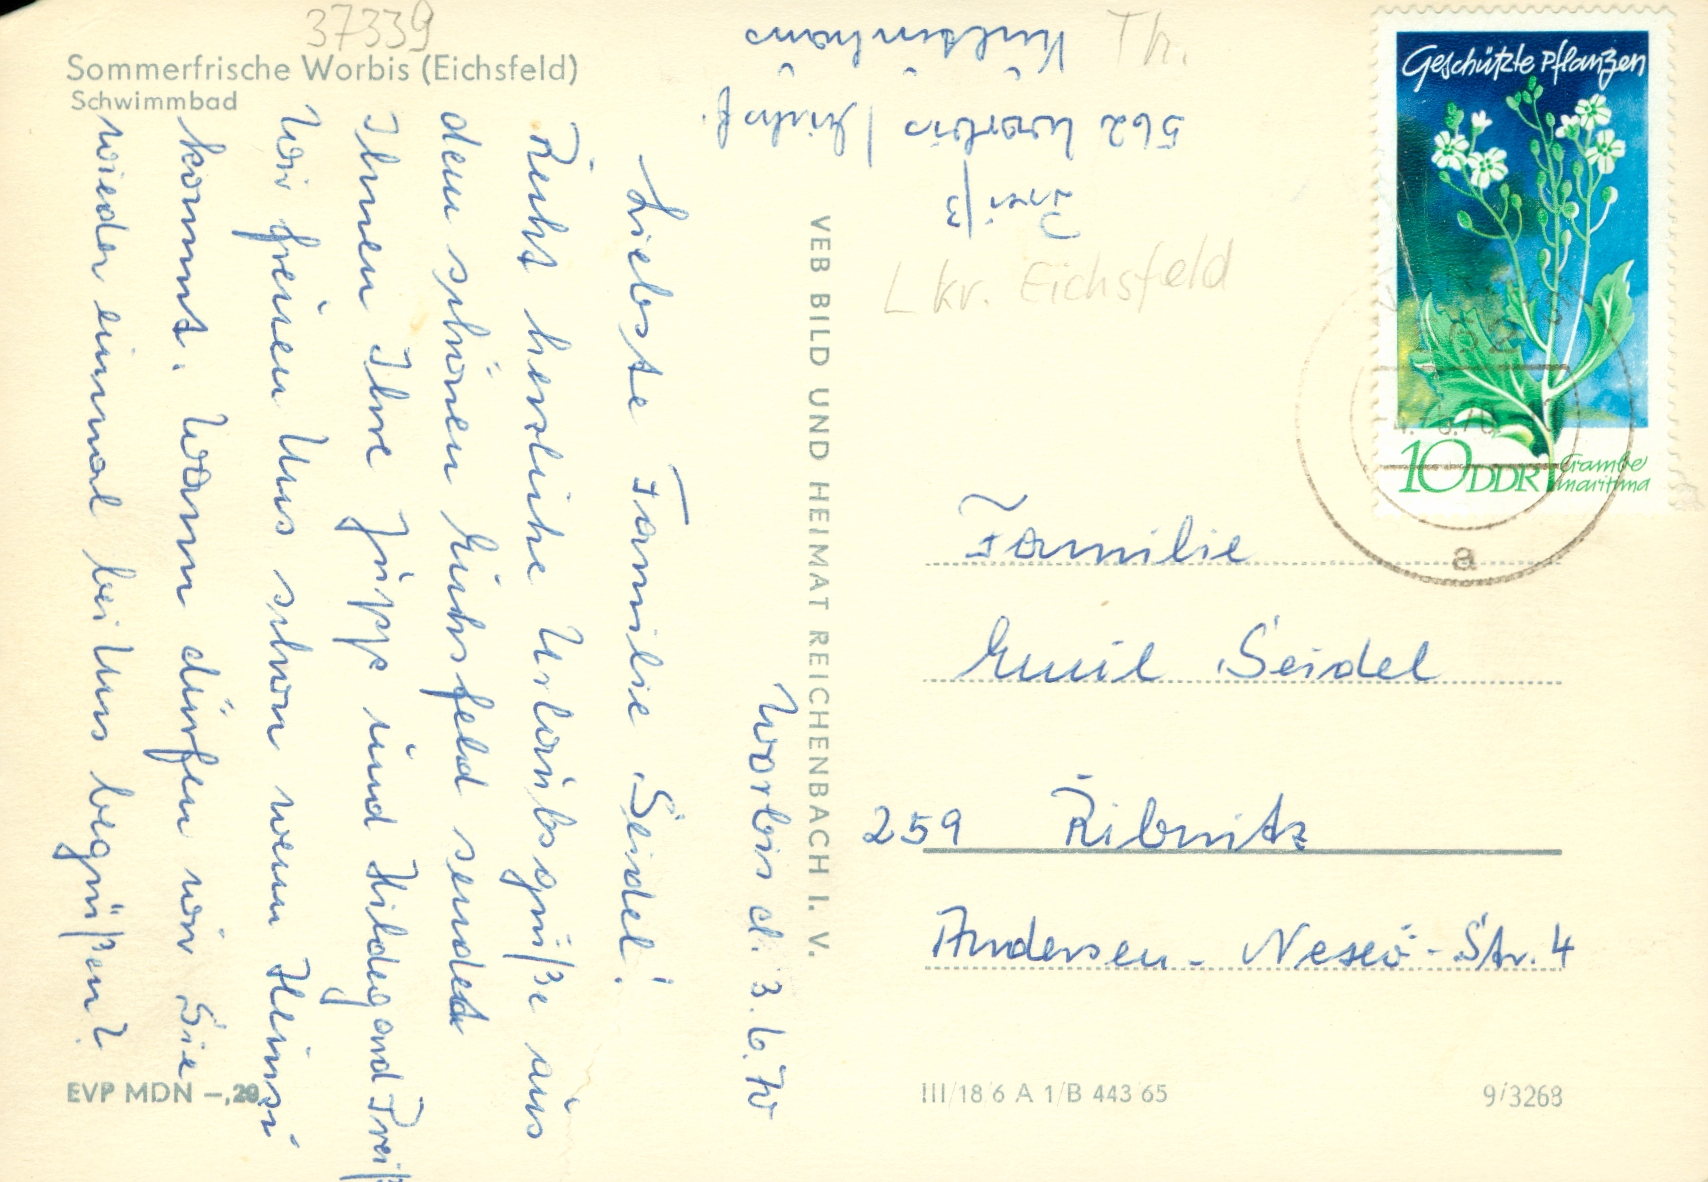 37339
Sommerfrische Worbis (Eichsfeld)
Schwimmbad
Worbis d. 3.6.70
Liebste Familie Seidel!
Recht herzliche Urlaubsgrüße aus
dem schönen Eichsfeld sendet
Ihnen Ihre Jupp und Hildegard Preiß
Wir freuen Uns schon wenn Heinsi
kommt. Wann dürfen wir Sie
wieder einmal bei Uns begrüßen?
EVP MDN –,20
VEB BILD UND HEIMAT REICHENBACH I. V.
Preiß
562 Worbis / Eichsf.
Th.
Lkr. Eichsfeld
Geschützte Pflanzen
10 DDR Crambe
maritima
562
a
Familie
Emil Seidel
259 Ribnitz
Andersen-Nexö-Str. 4
III/18/6 A 1/B 443/65
9/3268